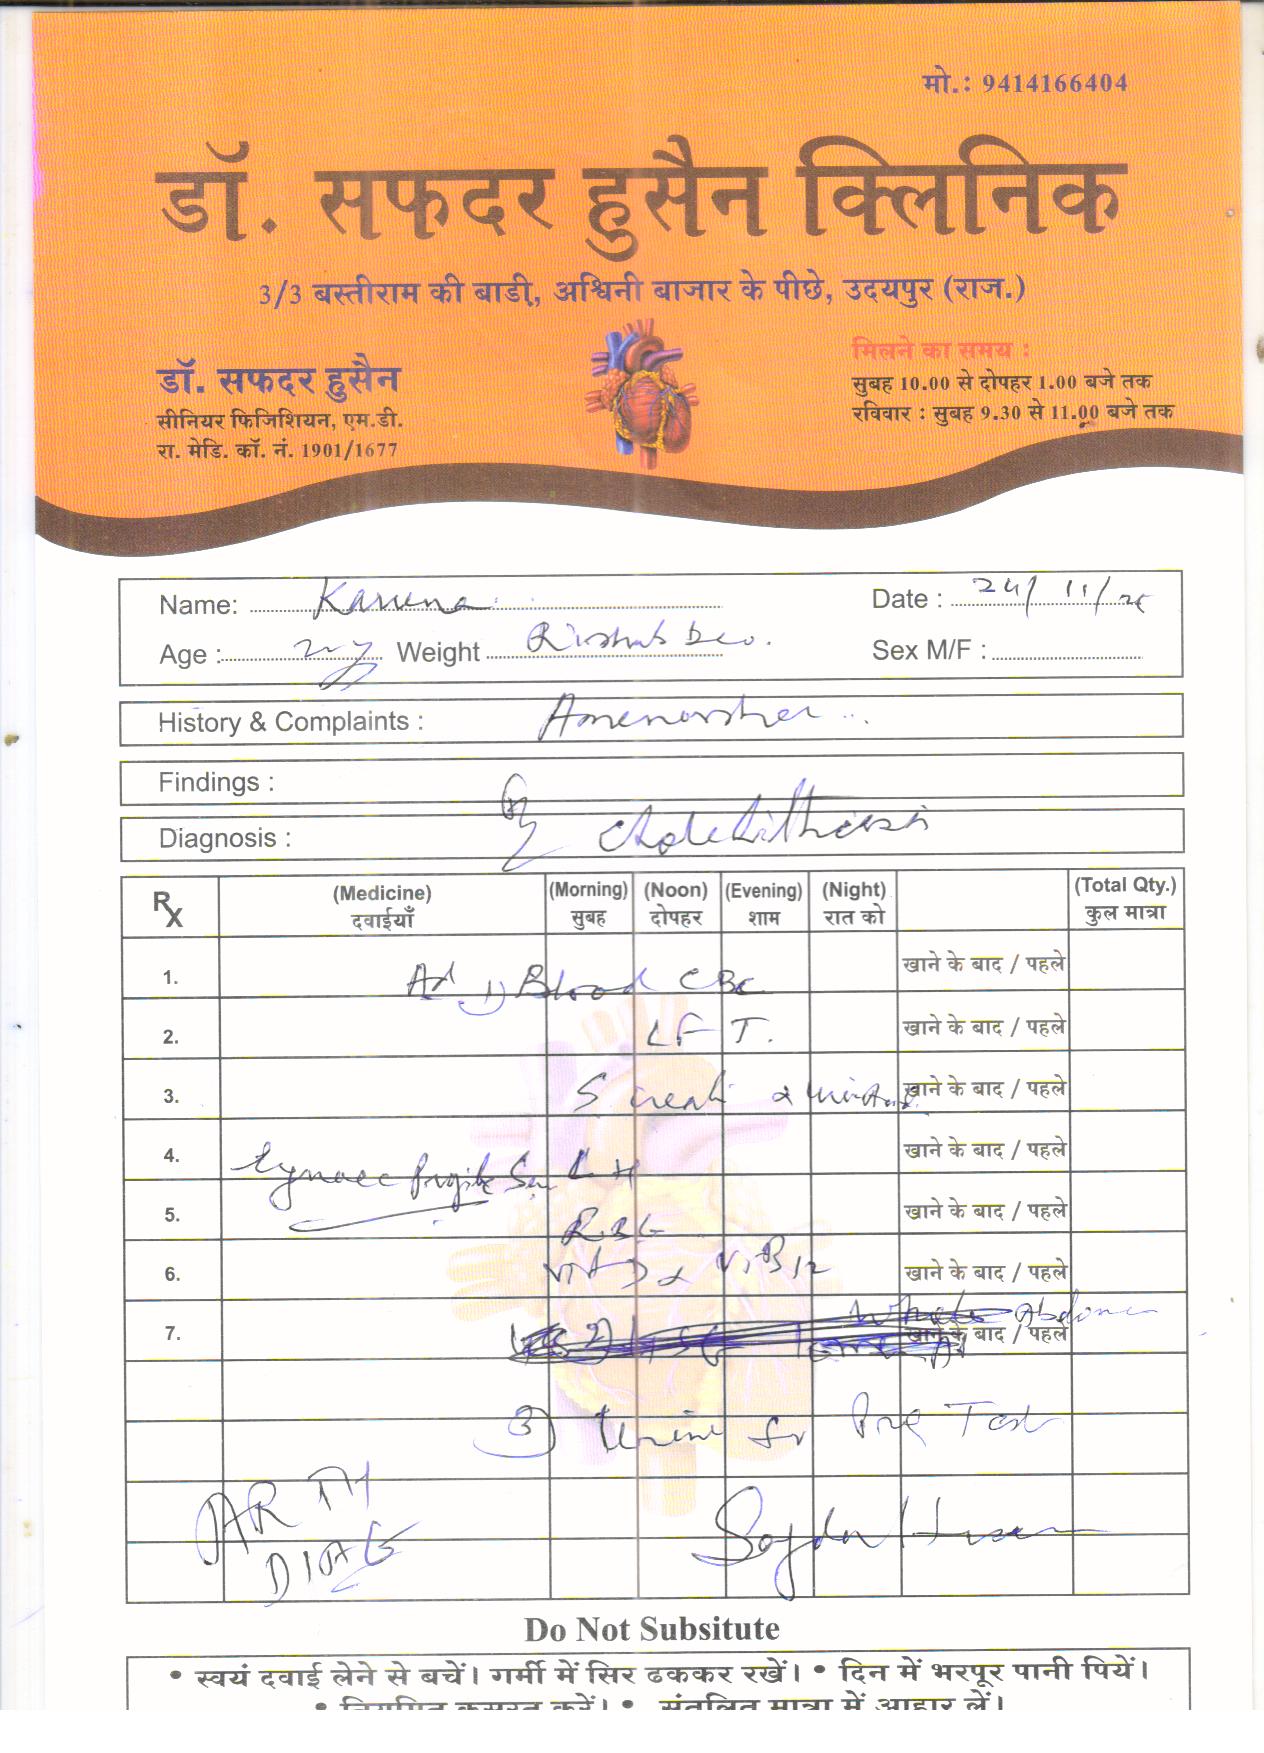 मो.: 9414166404
डॉ. सफदर हुसैन क्लिनिक
3/3 बस्तीराम की बाडी, अश्विनी बाजार के पीछे, उदयपुर (राज.)
मिलने का समय :
डॉ. सफदर हुसैन
सुबह 10.00 से दोपहर 1.00 बजे तक
सीनियर फिजिशियन, एम.डी.
रविवार : सुबह 9.30 से 11.00 बजे तक
रा. मेडि. कॉ. नं. 1901/1677
Name: Karuna Date : 24/11/25
Age : Weight Rishab Deo. Sex M/F :
History & Complaints :
Findings :
Diagnosis : Cholelithiasis
Rx (Medicine) (Morning) (Noon) (Evening) (Night) (Total Qty.)
दवाईयाँ सुबह दोपहर शाम रात को कुल मात्रा
1. Ad 1) Blood CBC खाने के बाद / पहले
2. LFT. खाने के बाद / पहले
3. S खाने के बाद / पहले
4. Gynaec खाने के बाद / पहले
5. RBG खाने के बाद / पहले
6. Vit D & Vit B12 खाने के बाद / पहले
7. Whole Abdomen खाने के बाद / पहले
3) Urine for Preg Test
ARTH
DIAG
Do Not Subsitute
• स्वयं दवाई लेने से बचें। गर्मी में सिर ढककर रखें। • दिन में भरपूर पानी पियें।
• नियमित कसरत करें। • संतुलित मात्रा में आहार लें।